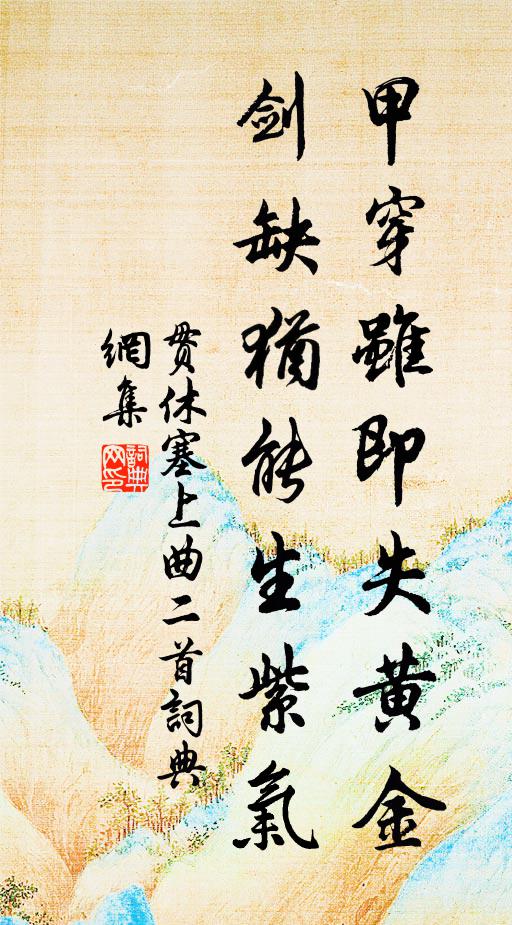 甲穿雖即失黄金
剑缺猶能生紫氣
贯休塞上曲二首詞典
網集
詞典
网印